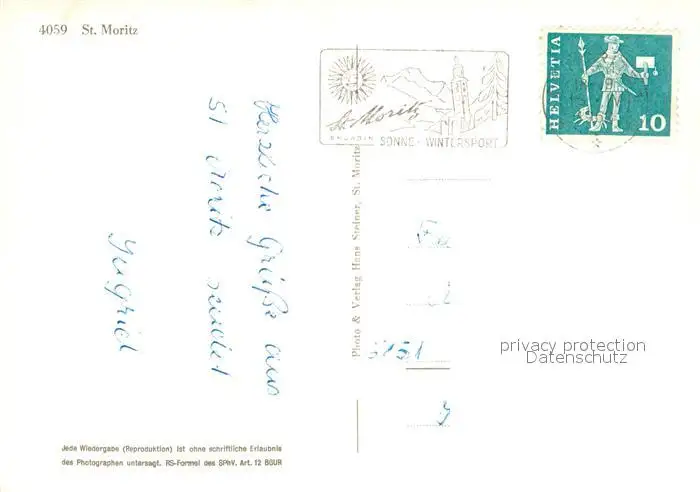 4059 St. Moritz
HELVETIA
10
St. Moritz
ENGADIN
SONNE · WINTERSPORT
Herzliche Grüße aus
St Moritz sendet
Ingrid
Photo & Verlag Hans Steiner, St. Moritz
5151
privacy protection
Datenschutz
Jede Wiedergabe (Reproduktion) ist ohne schriftliche Erlaubnis
des Photographen untersagt. RS-Formel des SPhV. Art. 12 BGUR